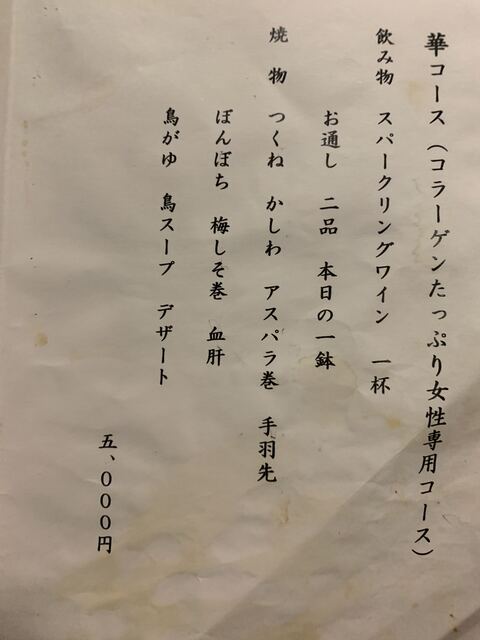 華コース（コラーゲンたっぷり女性専用コース）
飲み物　スパークリングワイン　一杯
お通し　二品　本日の一鉢
焼　物　つくね　かしわ　アスパラ巻　手羽先
ぼんぼち　梅しそ巻　血肝
鳥がゆ　鳥スープ　デザート
五、０００円